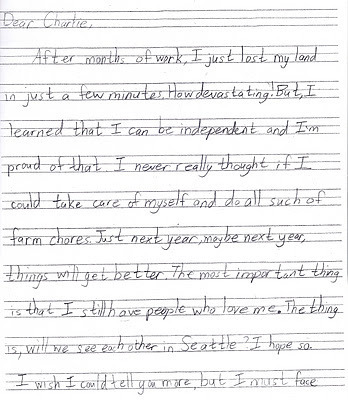 Dear Charlie,
After months of work, I just lost my land
in just a few minutes. How devastating! But, I
learned that I can be independent and I'm
proud of that. I never really thought if I
could take care of myself and do all such of
farm chores. Just next year, maybe next year,
things will get better. The most important thing
is that I still have people who love me. The thing
is, will we see each other in Seattle? I hope so.
I wish I could tell you more, but I must face